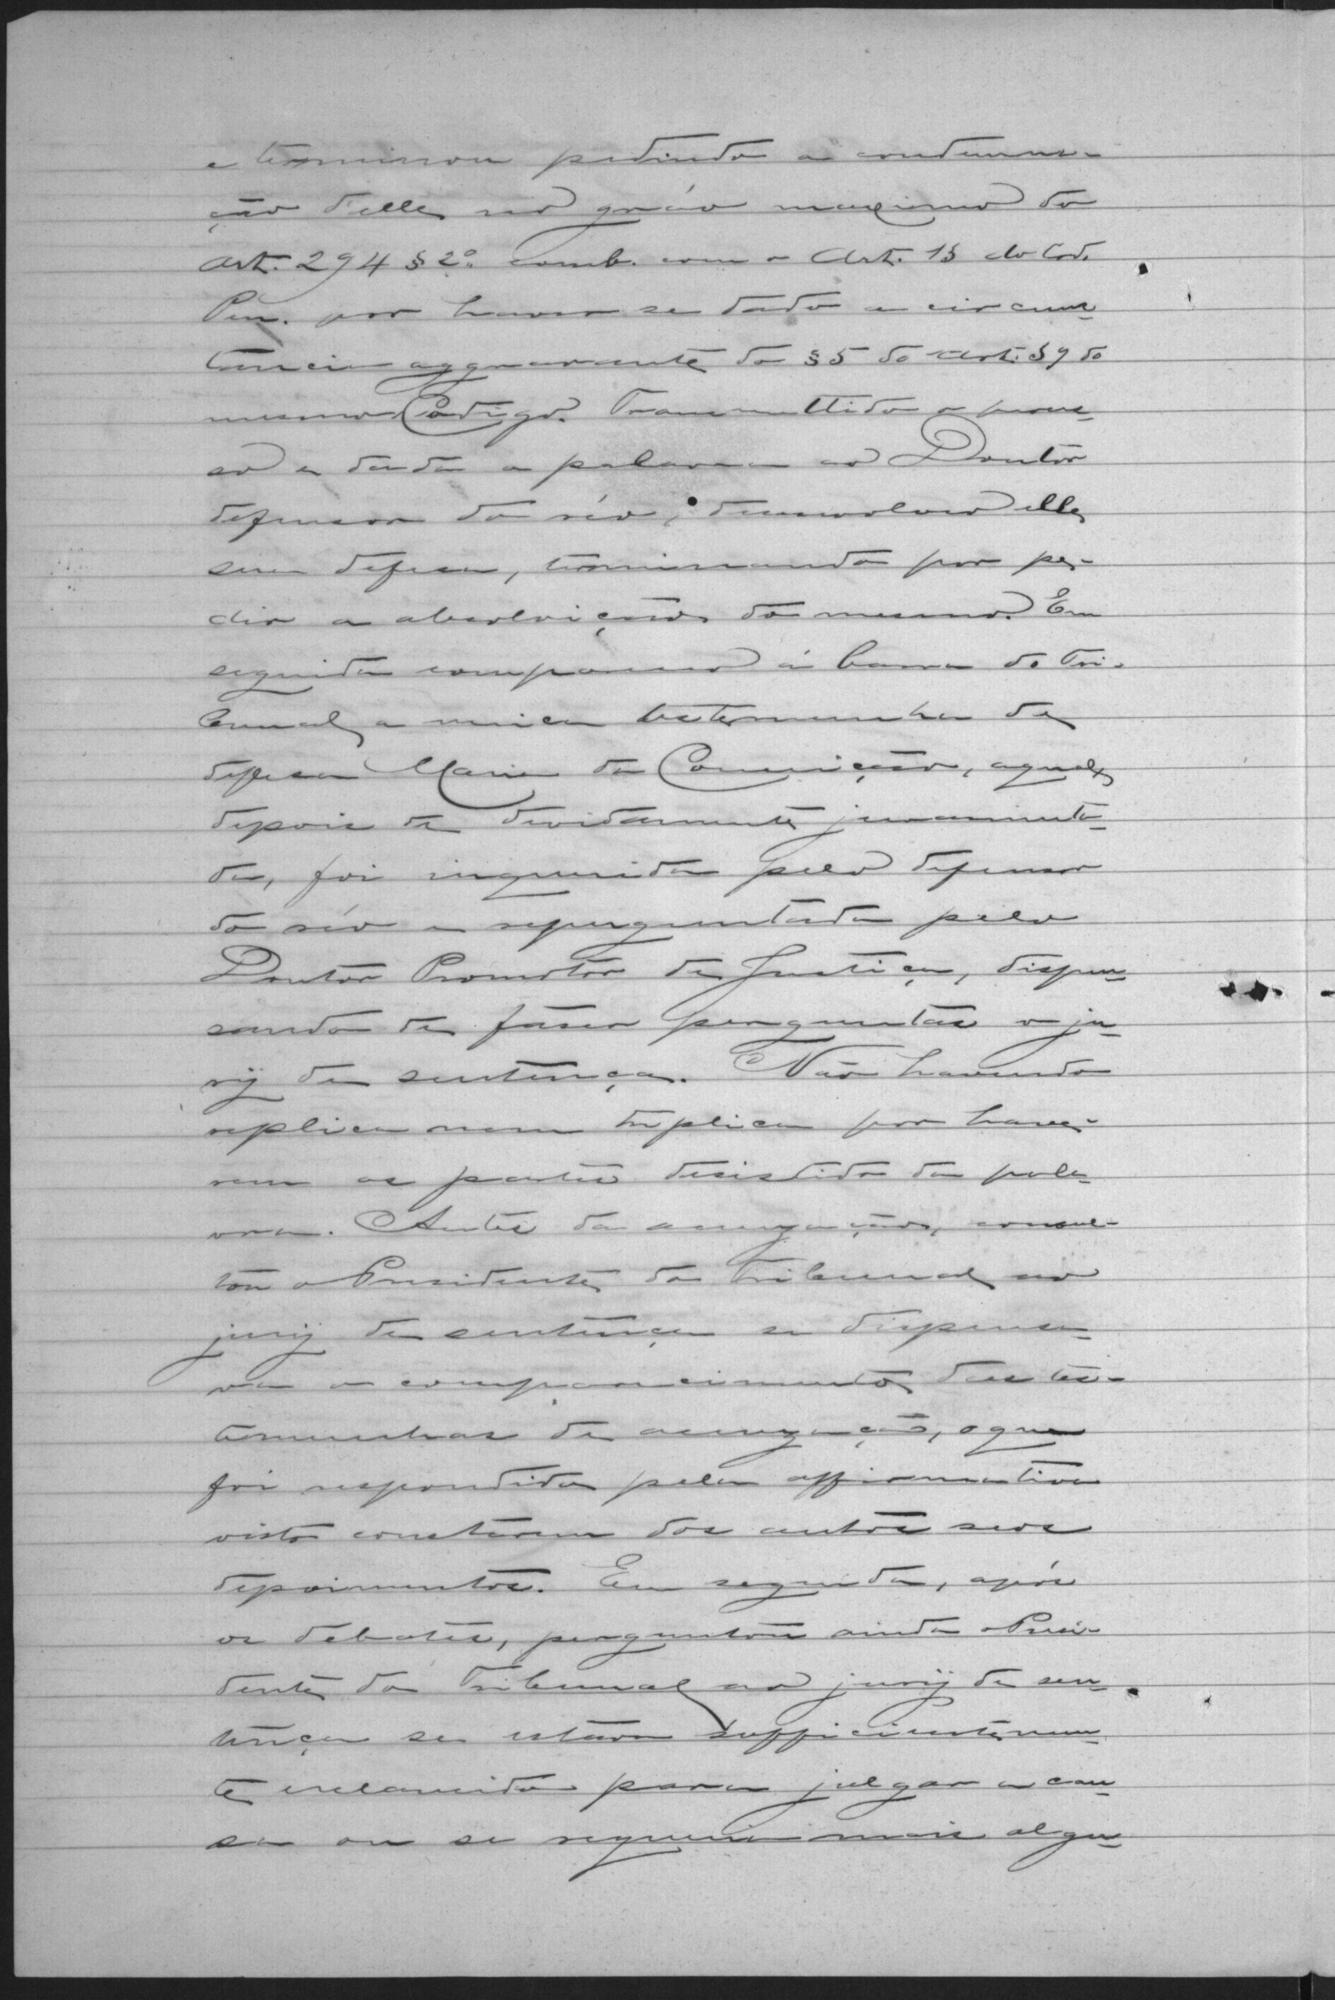 e terminou pedindo a condemna-
ção d'elle no gráo maximo do
Art. 294 § 2º comb. com o Art. 13 do Cod.
Pen. por haver se dado a circums-
tancia aggravante do § 5 do Art. 39 do
mesmo Codigo. Transmittido o proces-
so e dada a palavra ao Doutor
defensor do réo, desenvolveu elle
sua defesa, terminando por pe-
dir a absolvição do mesmo. Em
seguida compareceu á barra do Tri-
bunal, a unica testemunha de
defesa Maria da Conceição, a qual
depois de devidamente juramenta-
da, foi inquerida pelo defensor
do réo e reperguntada pelo
Doutor Promotor de Justiça, dispen-
sando de faser perguntas o ju-
ry de sentença. Não havendo
replica nem treplica por have-
rem as partes desistido da pala-
vra. Antes da accusação, consul-
tou o Presidente do Tribunal ao
jury de sentença se dispensa-
va o comparecimento das tes-
temunhas de accusação, o que
foi respondido pela affirmativa
visto constarem dos autos seos
depoimentos. Em seguida, após
os debates, perguntou ainda o Presi-
dente do Tribunal ao jury de sen-
tença se estava sufficientemen-
te esclarecido para julgar a cau-
sa ou se requeria mais algu-